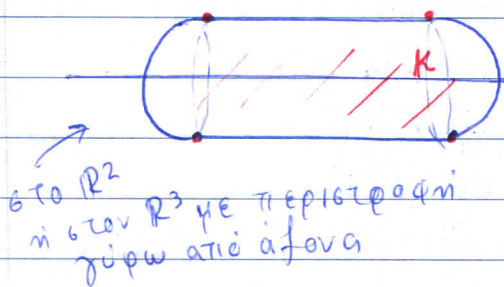 K
στο ℝ²
ή στον ℝ³ με περιστροφή
γύρω από άξονα